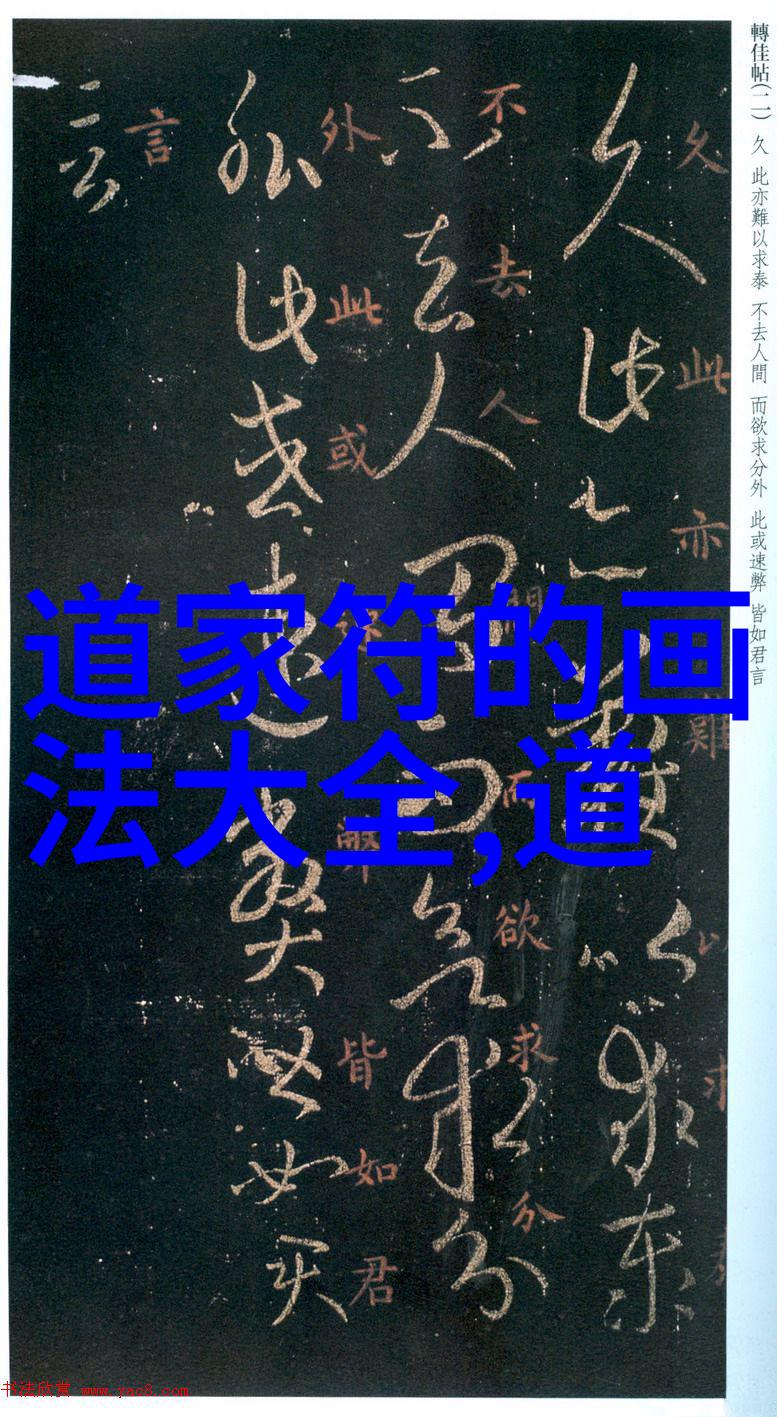 轉佳帖(二) 久 此亦難以求泰 不去人間 而欲求分外 此或速弊 皆如君言
久此亦難以求
不去人間而欲求分
外此或速弊皆如君
言
道家符的画
法大全,道
书法欣赏 www.yac8.com